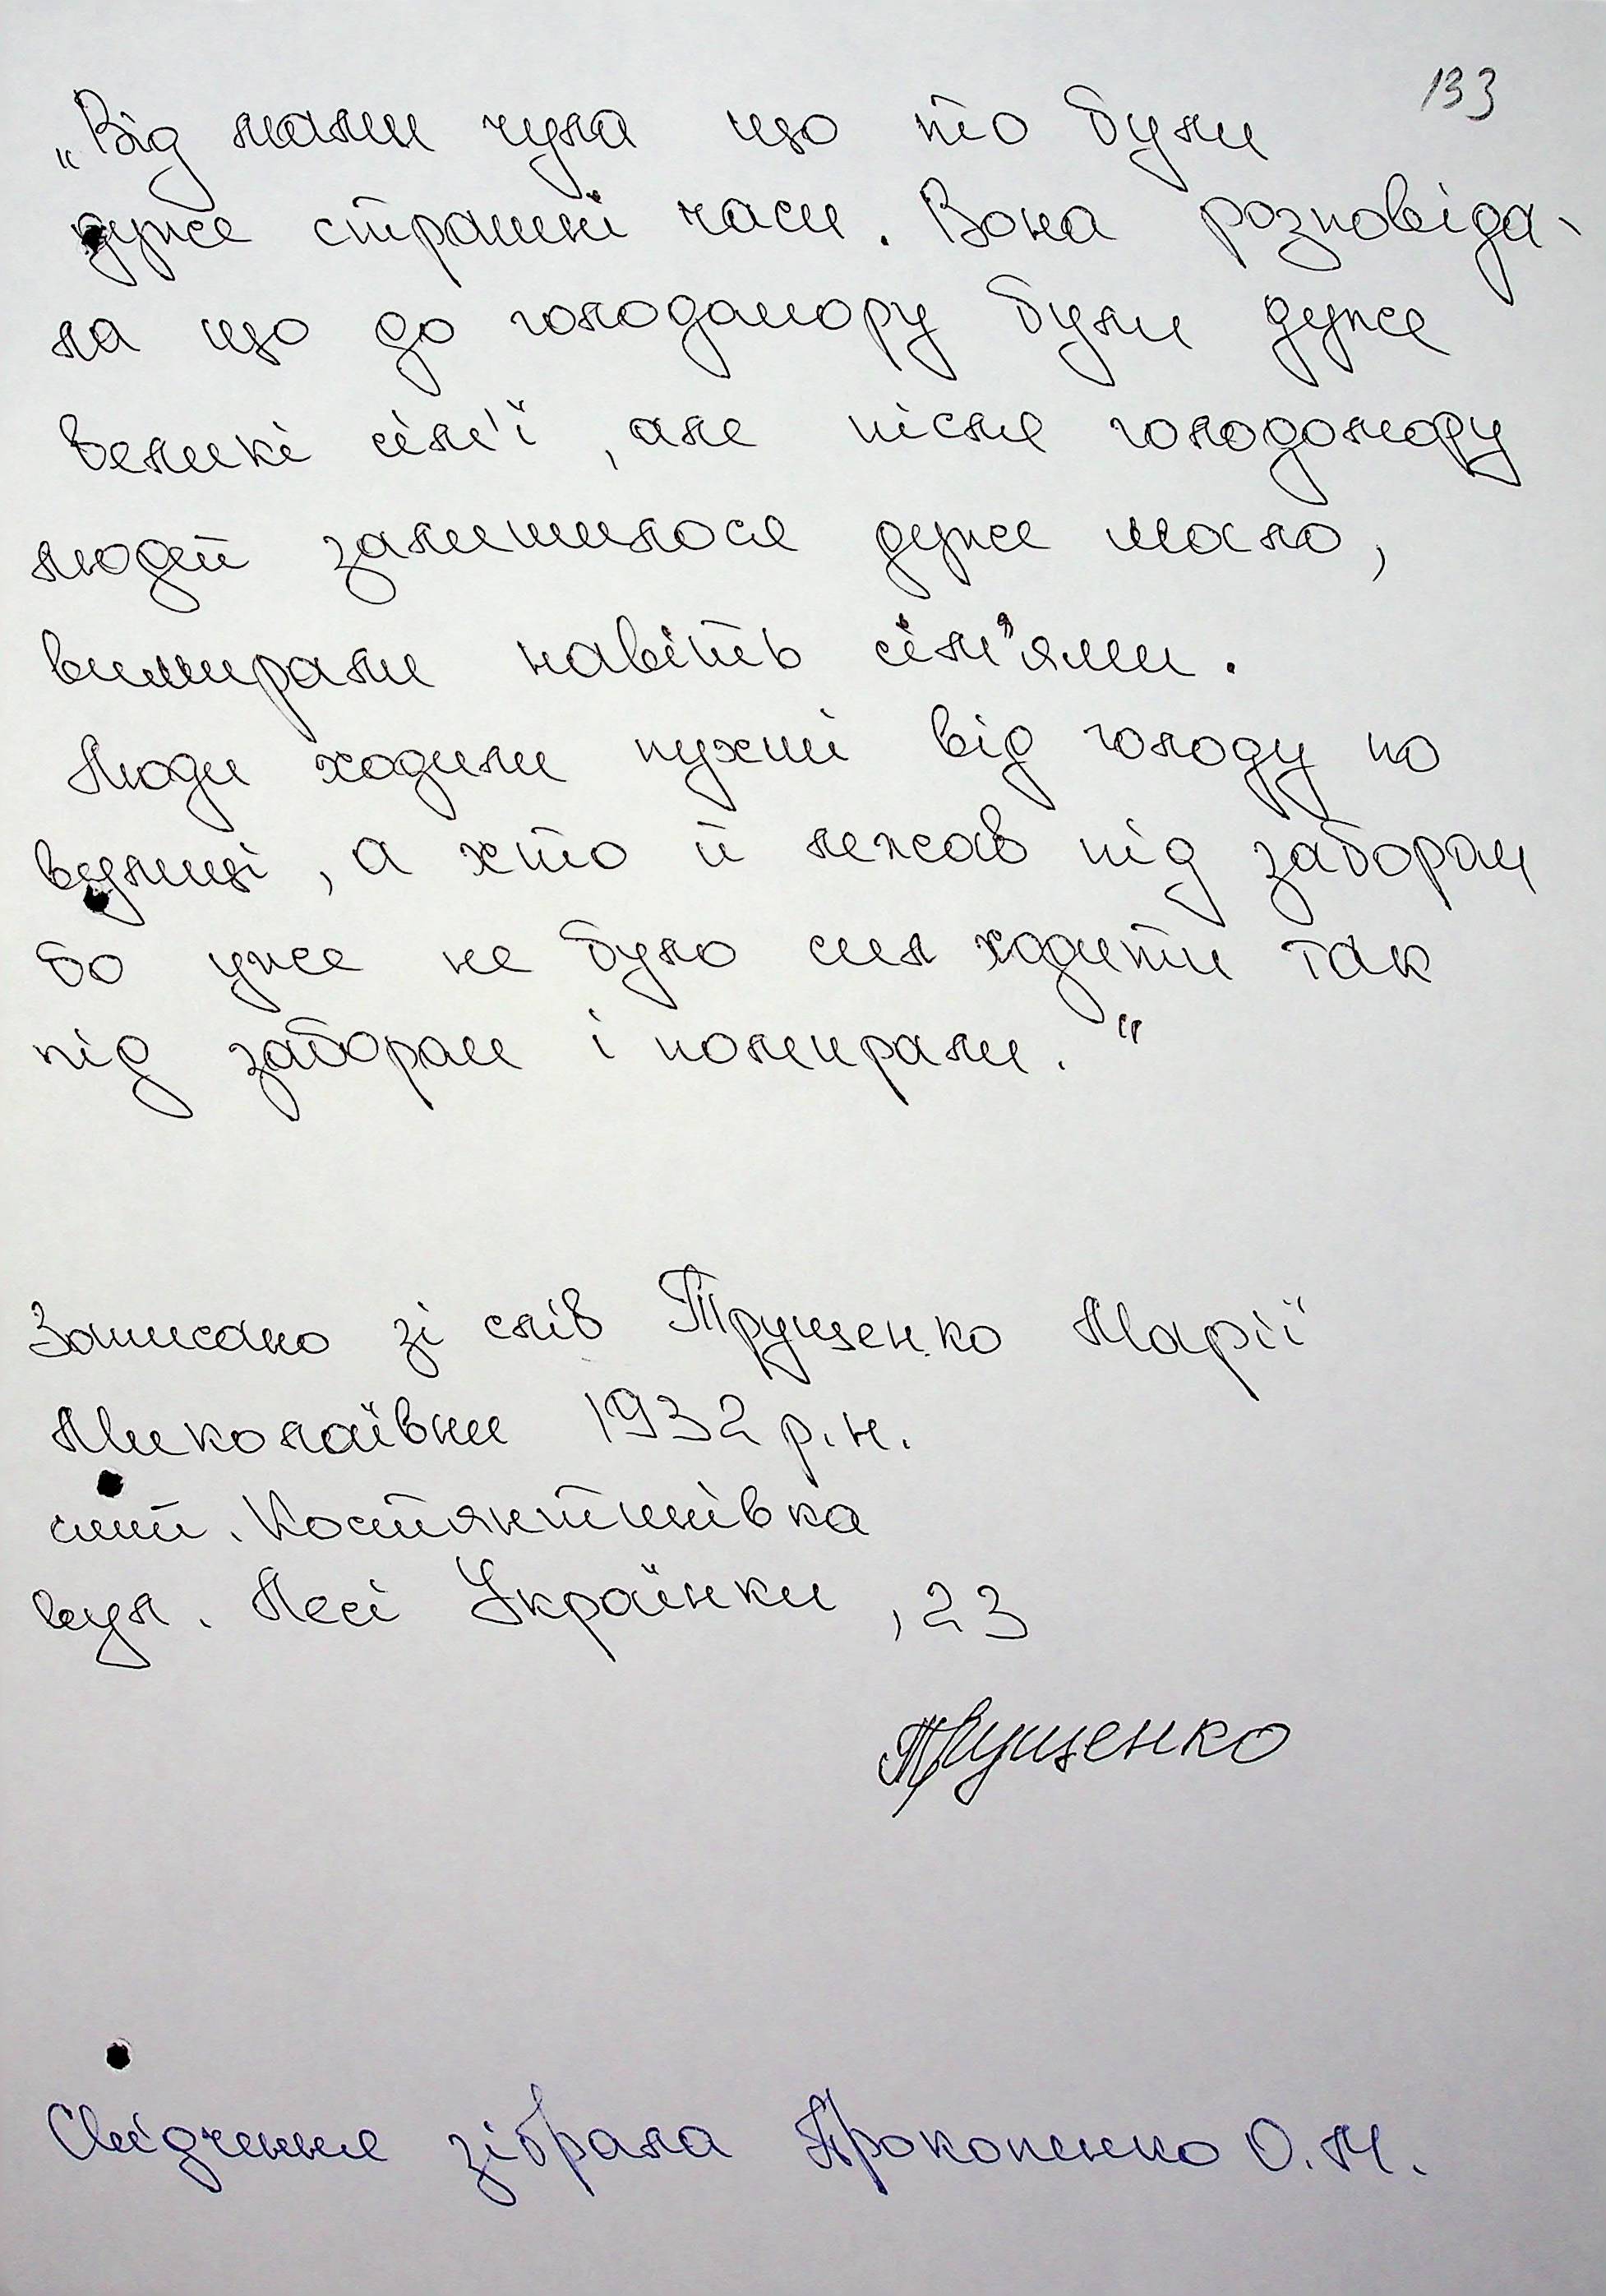 133
„Від мами чула що то були
дуже страшні часи. Вона розповіда-
ла що до голодомору були дуже
великі сім'ї, але після голодомору
людей залишилося дуже мало,
вимирали навіть сім'ями.
Люди ходили пухлі від голоду по
вулиці, а хто й лежав під забором
бо уже не було сил ходити так
під забором і помирали."
Записано зі слів Трущенко Марії
Миколаївни 1932 р.н.
смт. Костянтинівка
вул. Лесі Українки, 23
Трущенко
Свідчення зібрала Прокопенко О.М.